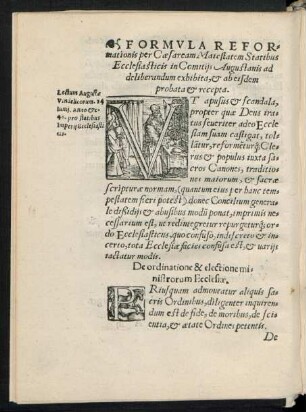 FORMVLA REFOR-
mationis per Cæsaream Maiestatem Statibus
Ecclesiasticis in Comitijs Augustanis ad
deliberandum exhibita, & ab eisdem
probata & recepta.
Lectum Augustæ
Vindelicorum. 14
Iunij. anno etc.
48. pro statibus
Imperij ecclesiasticis
VT abusus & scandala,
propter quæ Deus iratus
seueriter adeo Ecclesiam
suam castigat, tollãtur,
reformẽturq; Clerus
& populus iuxta sacros
Canones, traditiones
maiorum, & sacræ
scripturæ normam, (quantum eius per hanc tempestatem
fieri potest) donec Concilium generale
dissidijs & abusibus modũ ponat, imprimis necessarium
est, ut redintegretur
ordo Ecclesiasticus, quo confuso, indiscreto & incerto,
tota Ecclesiæ facies confusa est, & uarijs
iactatur modis.
De ordinatione & electione ministrorum
Ecclesiæ.
PRiusquam admoueatur aliquis sacris
Ordinibus, diligenter inquirendum
est de fide, de moribus, de scientia,
& ætate Ordines petentis.
De